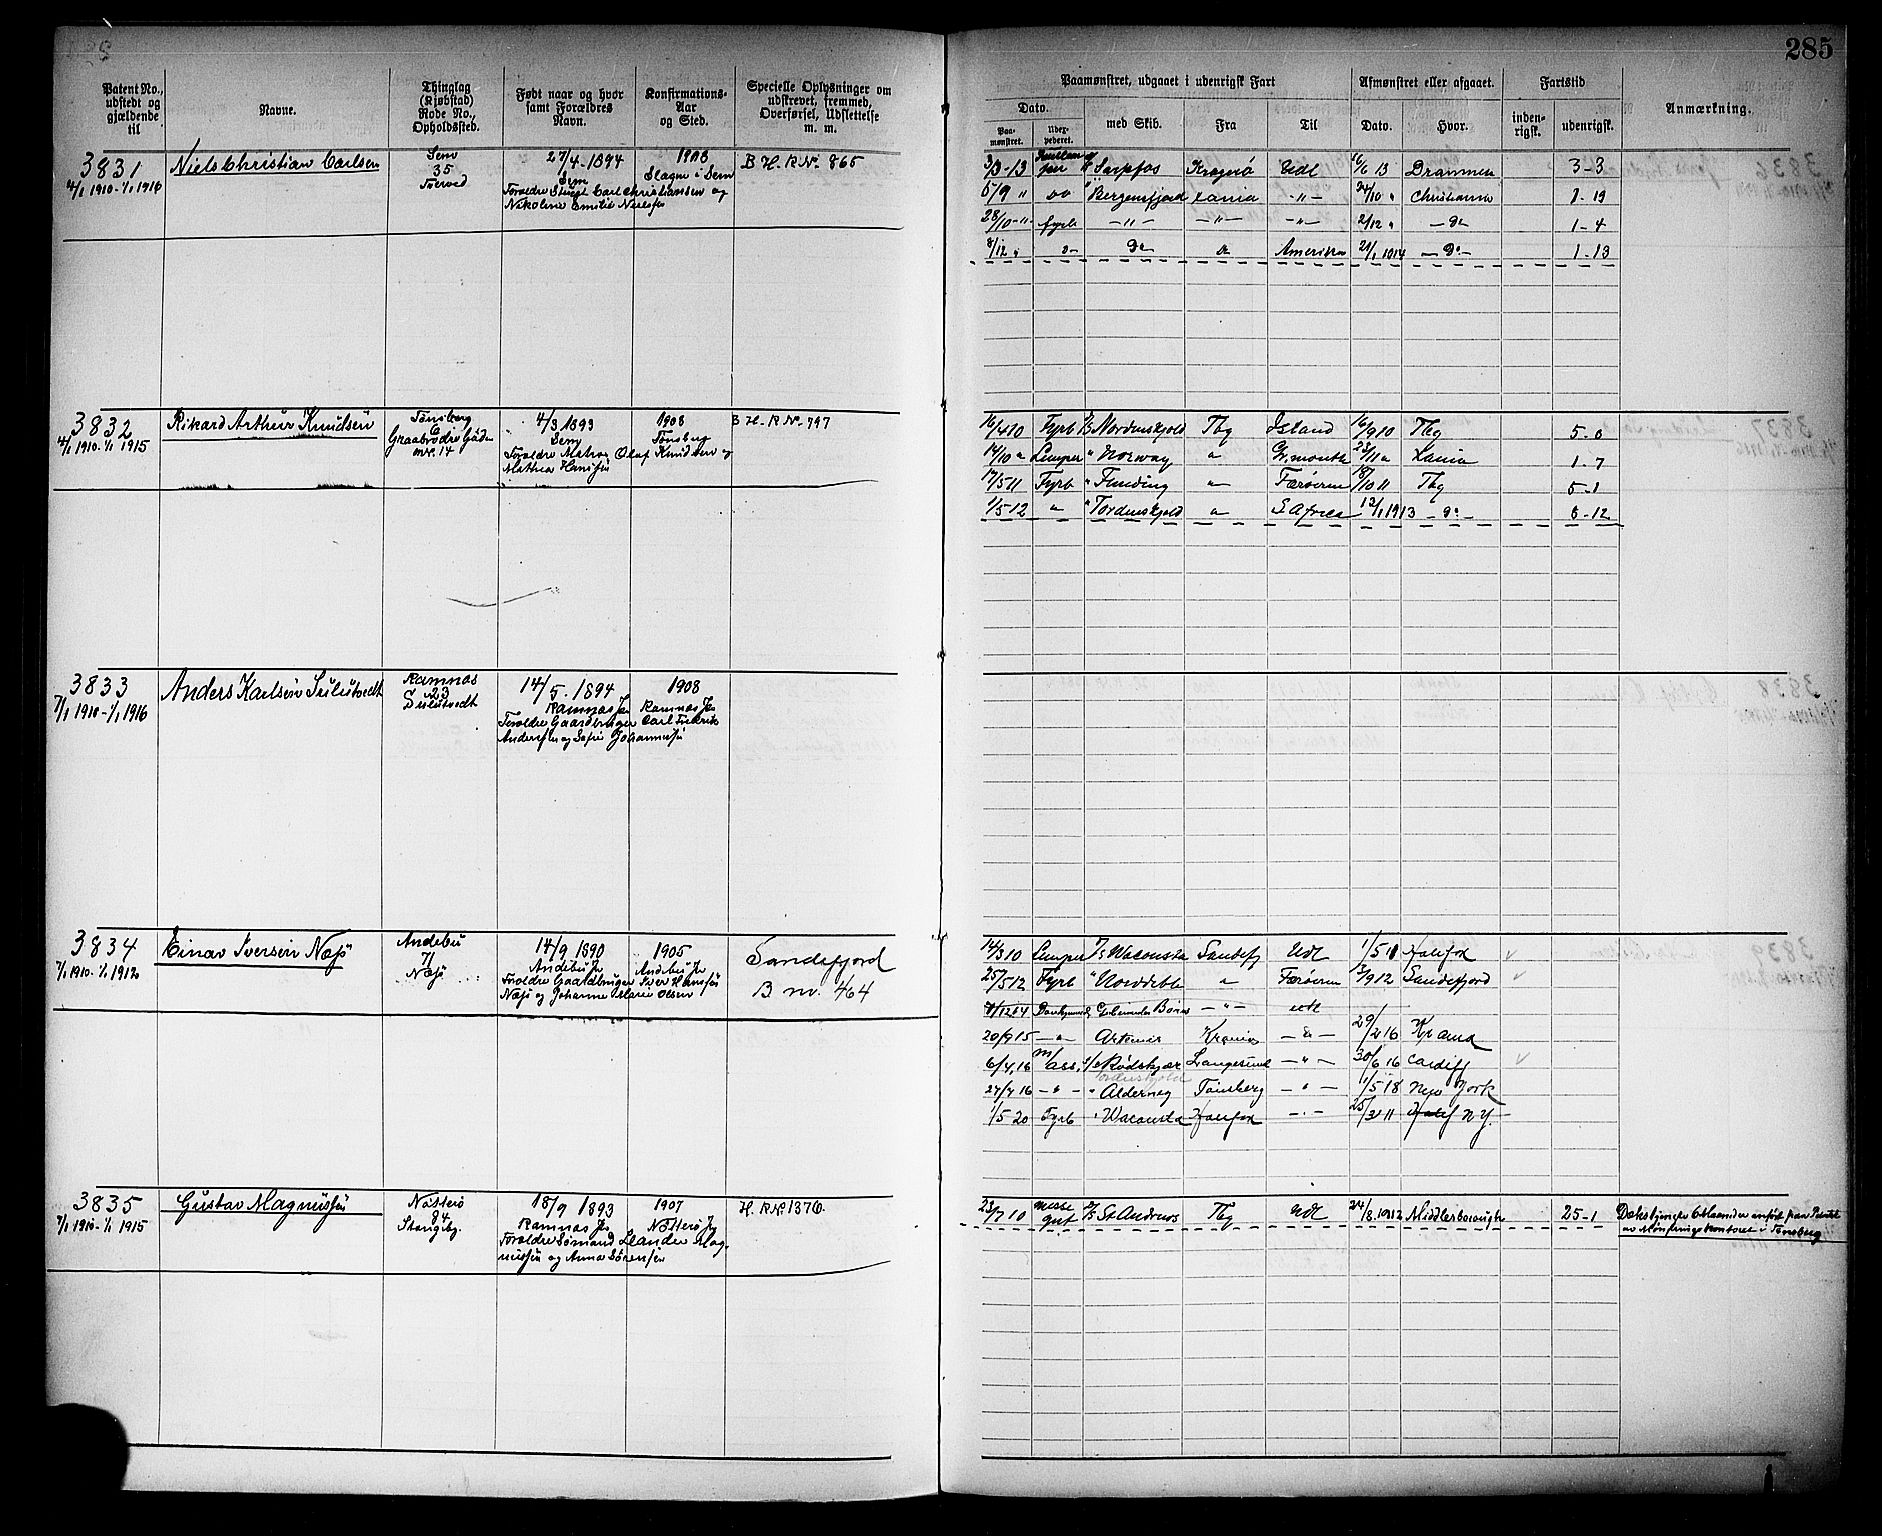 285
Patent No., udstedt og gjældende til
Navne.
Thinglag (Kjøbstad) Rode No., Opholdssteb.
Født naar og hvor samt Forældres Navn.
Konfirmations-Aar og Sted.
Specielle Oplysninger om udskrevet, fremmed, Overførsel, Udslettelse m. m.
Paamønstret, udgaaet i udenrigsk Fart
Afmønstret eller afgaaet.
Fartstid
Anmærkning.
Dato.
med Skib.
Fra
Til
Dato.
Hvor.
inden-rigsk.
udenrigsk.
Paa-mønstret.
3831
4/1 1910-1/1 1916
Niels Christian Carlsen
Sem
35
27/4-1894
Sem
1908
Slagen i Sem
B H. R No. 865
Nikoline Emilie
3/3-13
Kragerø
Udl
16/6 13
Drammen
3-3
5/9 "
Do
" Bergensfjord
-"-
24/10 "
Christiania
1-19
28/10-"-
fyrb
-"-
-"-
-"-
2/12 "
-Do-
1-4
8/12 "
Do
Amerika
21/1 1914
-Do-
1-13
3832
4/1 1910-1/1 1915
Rikard Arthur Knudsen
Tønsberg
6
Graabrødre Gaden
nr. 14
4/3 1893
Sem
Forældre Matros Olaf Knudsen og
Mathea Hansen
1908
Tønsberg
B H. R No. 797
16/4 10
Fyrb
Nordenskjold
Tbg
Island
16/9 10
Tbg
5-0
14/10 "
Lemper
" Norway
"
28/11 "
Xania
1-7
17/5 11
Fyrb
" Funding
"
Færøerne
18/10 11
Tbg
5-1
1/5 12
"
" Tordenskjold
"
S Africa
13/1 1913
-Do-
8-12
3833
7/1 1910-1/1 1916
Anders Karlsen
Ramnæs
23
14/5-1894
Ramnæs
Forældre Gaardbruger Carl Fredrik
Andersen og Sofie Johannesen
1908
Ramnæs
3834
7/1 1910-1/1 1912
Einar Iversen Næs
Andebu
71
Næs
14/9 1890
Andebu
Forældre Gaardbruger Iver Hansen
Næs og Johanne Marie Olsen
1905
Andebu
Sandefjord
B nr. 464
14/3 10
Lemper
Waconsta
Sandefj
Udl
1/5 11
Halifax
25/5 12
Fyrb
"
"
Færøerne
3/9 12
Sandefjord
-"-
20/9 15
-"-
Artemis
-"-
29/2 16
6/4, 16
Rødskjær
Langesund
-"-
30/6 16
Cardiff
Tordenskjold
27/7 16
-"-
" Alderney
Tønsberg
-"-
1/5 18
New York
1/5 20
Fyrb
" Waconsta
Halifax
-"-
Halif N.Y.
3835
7/1 1910-1/1 1915
Gustav Magnussen
Nøtterø
84
18/9 1893
Ramnæs
Forældre Sømand Leander Mag-
nussen og Anna Sørensen
1907
Nøtterø
H. R No 1376.
23/7 10
Messe
gut
St Andrews
Tbg
Udl
24/8.1912
Middlesborough
25-1
Mønstringskontoret i Tønsberg